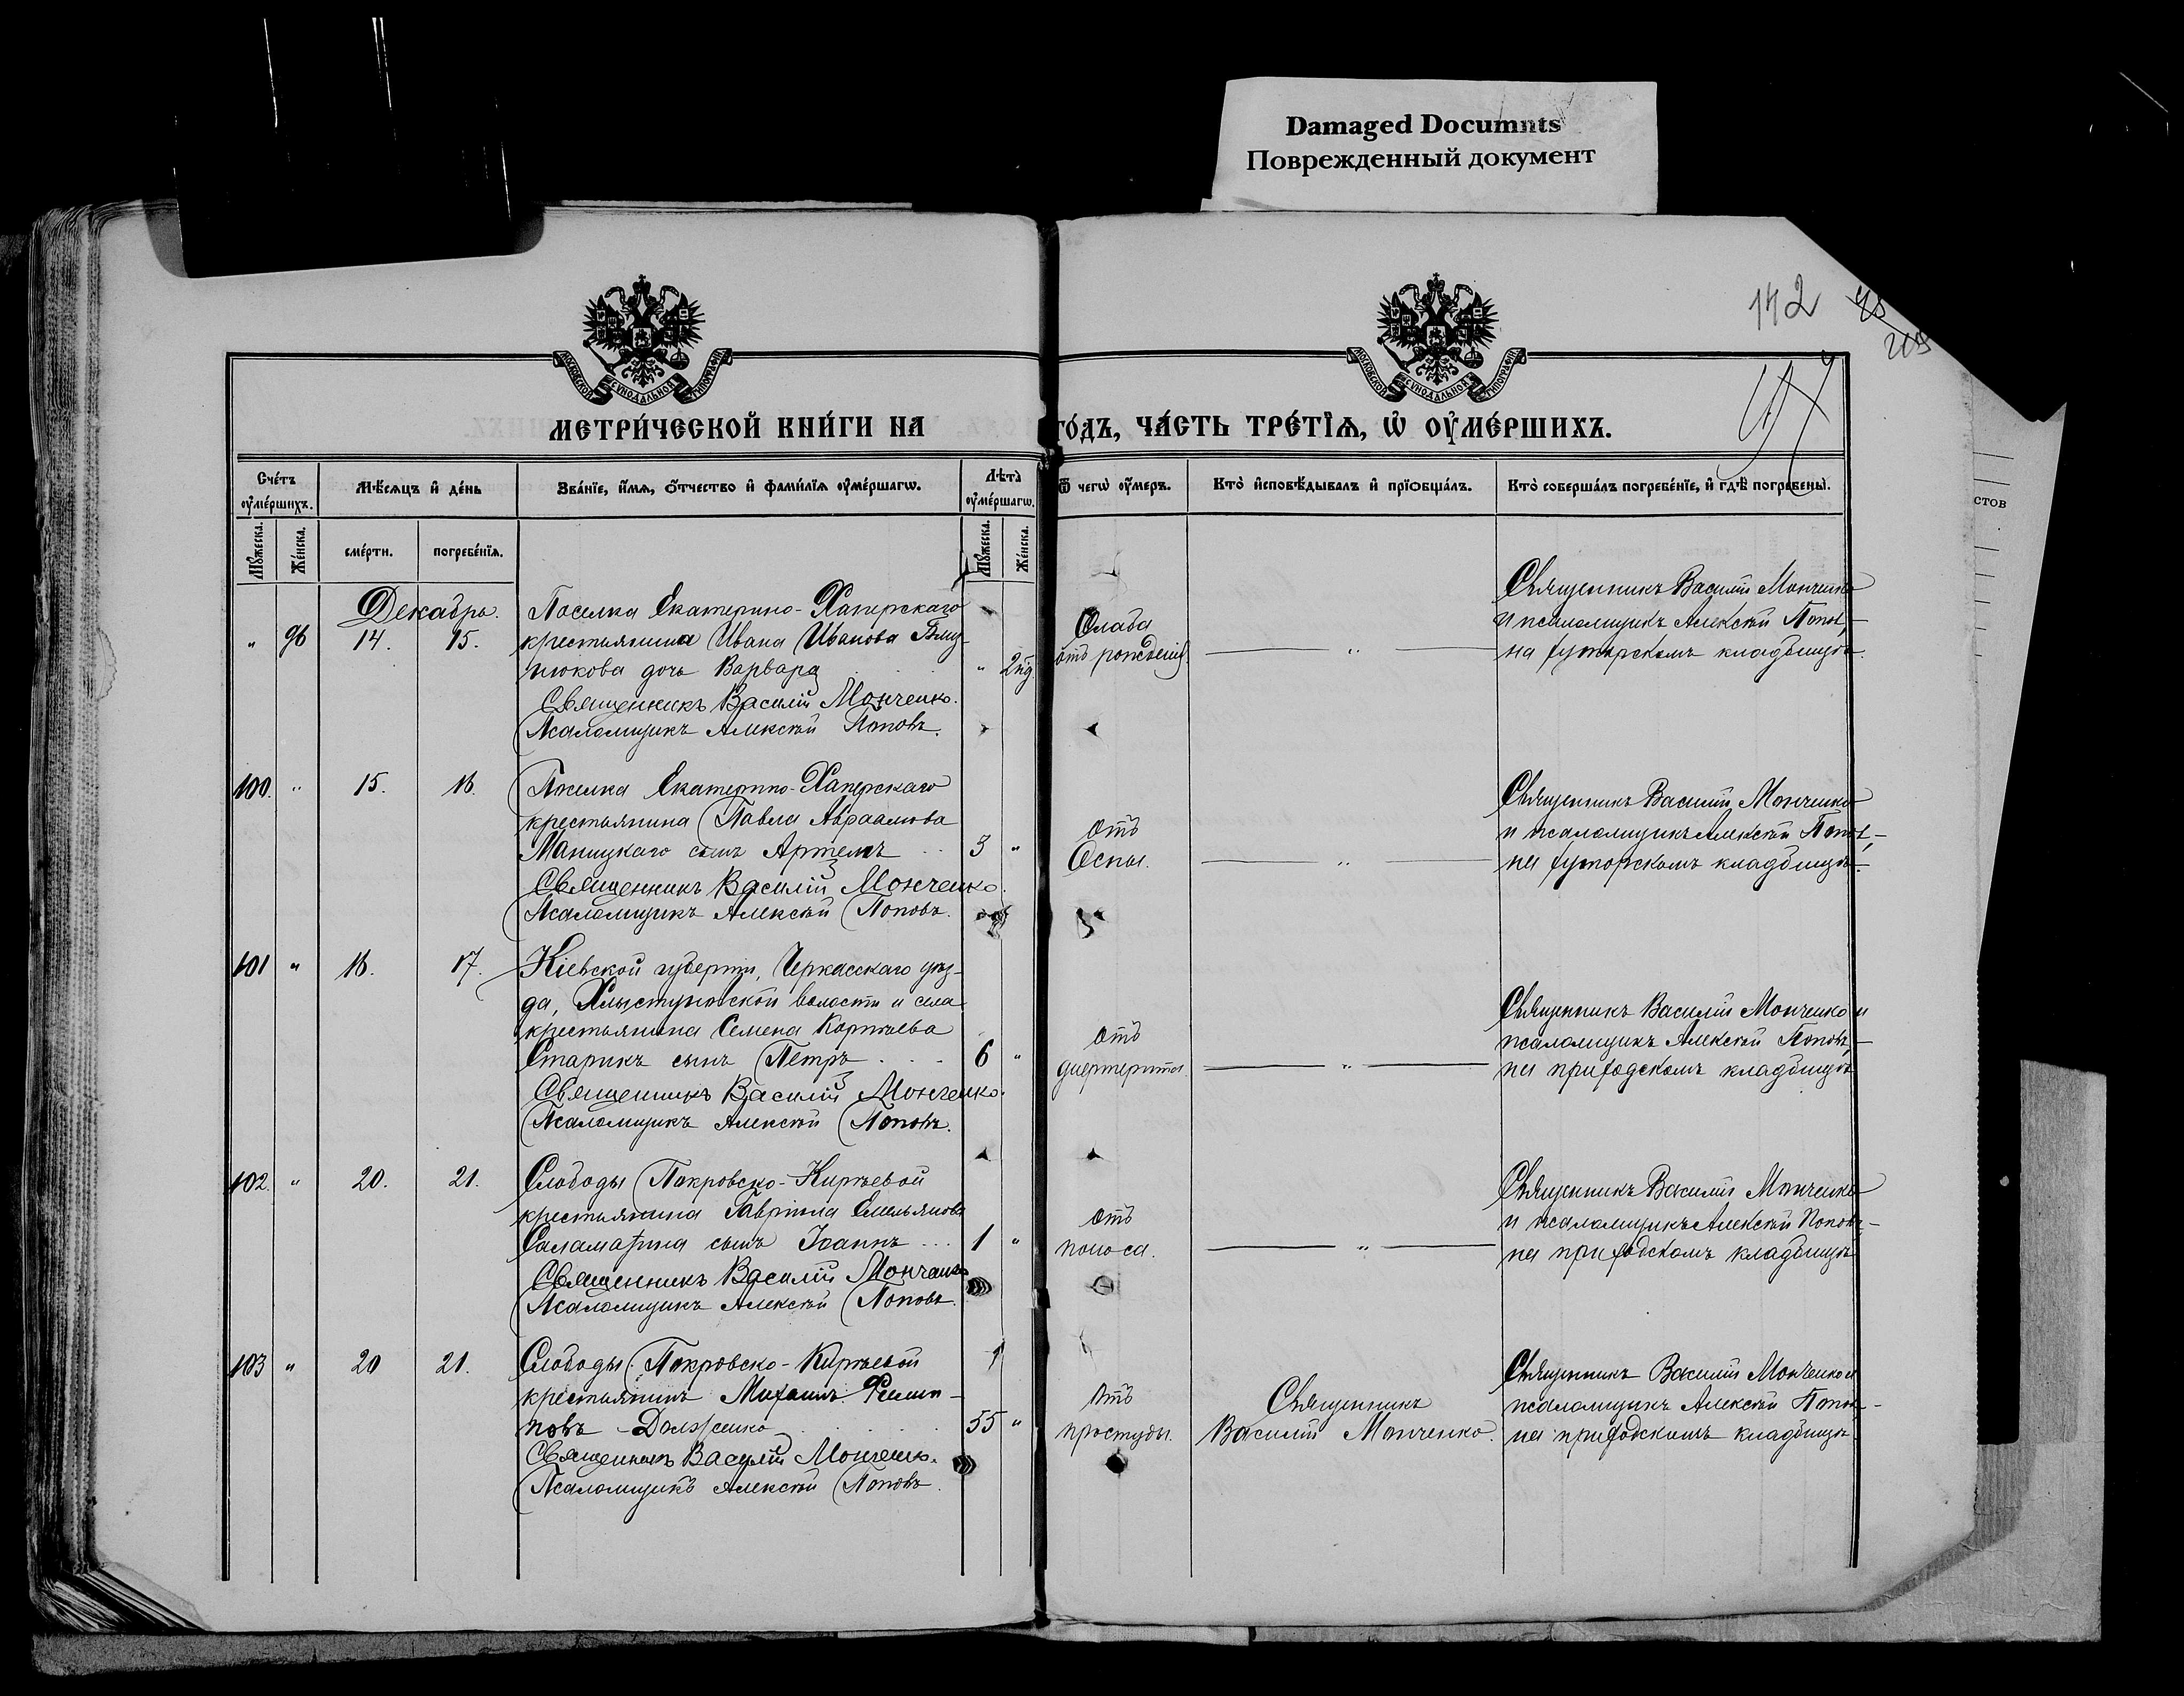 Damaged Documnts
Поврежденный документ
142
МОСКОВСКОЙ СУНОДАЛЬНОЙ ТИПОГРАФІИ
МОСКОВСКОЙ СУНОДАЛЬНОЙ ТИПОГРАФІИ
МЕТРИ́ЧЕСКОЙ КНИ́ГИ НА го́дъ, ча́сть тре́тїѧ, ѡ҆ оу҆ме́ршихъ.
Сче́тъ оу҆ме́ршихъ.
Мѣ́сѧцъ и҆ де́нь
Зва́нїе, и҆́мѧ, ѻ҆́тчество и҆ фами́лїѧ оу҆ме́ршагѡ.
Лѣ́та оу҆ме́ршагѡ.
Ѿ чегѡ̀ оу҆́меръ.
Кто̀ и҆сповѣ́дывалъ и҆ прїѡбща́лъ.
Кто̀ соверша́лъ погребе́нїе, и҆ гдѣ̀ погребены̀.
Мꙋ́жеска.
Же́нска.
сме́рти.
погребе́нїѧ.
Мꙋ́жеска.
Же́нска.
стов
Декабрь.
" 96 14. 15.
Поселка Екатерино-Хаперскаго
крестьянина Ивана Иванова
дочь Варвара
Священникъ Василій Монченко.
Псаломщикъ Алексѣй Поповъ.
Слаба
отъ рожденія
"
Священникъ Василій Монченко
и псаломщикъ Алексѣй Попов,-
на хуторскомъ кладбищѣ.
100. " 15. 16.
Поселка Екатерино-Хаперскаго
крестьянина Павла Авраамова
Маницкаго сынъ Артемъ 3 "
Священникъ Василій Мончеико.
Псаломщикъ Алексѣй Поповъ.
отъ
Оспы.
"
Священникъ Василій Мончеико
и псаломщикъ Алексѣй Попов,-
на хуторскомъ кладбищѣ.
101 " 16. 17.
Кіевской губерніи, Черкасскаго уѣз-
да, Хлыстуновской волости и села
крестьянина Семена Корнѣева
Старикъ сынъ Петръ 6 "
Священникъ Василій Мончеико.
Псаломщикъ Алексѣй Поповъ.
отъ
диѳтерита.
"
Священникъ Василій Мончеико и
псаломщикъ Алексѣй Поповъ,-
на приходскомъ кладбищѣ
102. " 20. 21.
Слободы Покровско-Кирѣевой
крестьянина Гавріила Емельянова
Саламахина сынъ Іоаннъ ... 1 "
Священникъ Василій Мончеико
Псаломщикъ Алексѣй Поповъ.
отъ
поноса.
"
Священникъ Василій Мончеико
и псаломщикъ Алексѣй Поповъ,-
на приходскомъ кладбищѣ
103 " 20 21.
Слободы Покровско-Кирѣевой
крестьянинъ Михаилъ Филип-
повъ Долженко 55 "
Священникъ Василій Мончеико.
Псаломщикъ Алексѣй Поповъ.
отъ
простуды.
Священникъ
Василій Мончеико.
Священникъ Василій Мончеико и
псаломщикъ Алексѣй Попов,-
на приходскомъ кладбищѣ.